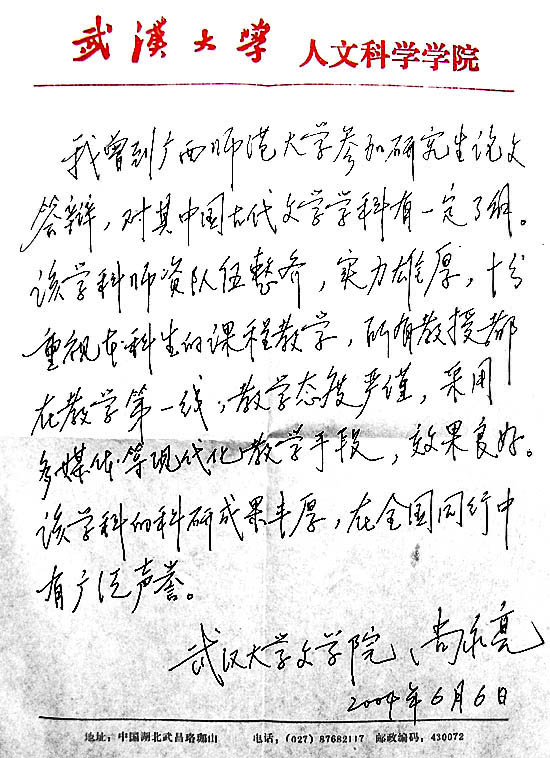 武漢大學 人文科学学院
我曾到广西师范大学参加研究生论文
答辩，对其中国古代文学学科有一定了解。
该学科师资队伍整齐，实力雄厚，十分
重视本科生的课程教学，所有教授都
在教学第一线，教学态度严谨，采用
多媒体等现代化教学手段，效果良好。
该学科的科研成果丰厚，在全国同行中
有广泛声誉。
武汉大学文学院 尚永亮
2004年6月6日
地址：中国湖北武昌珞珈山 电话：(027) 87682117 邮政编码：430072